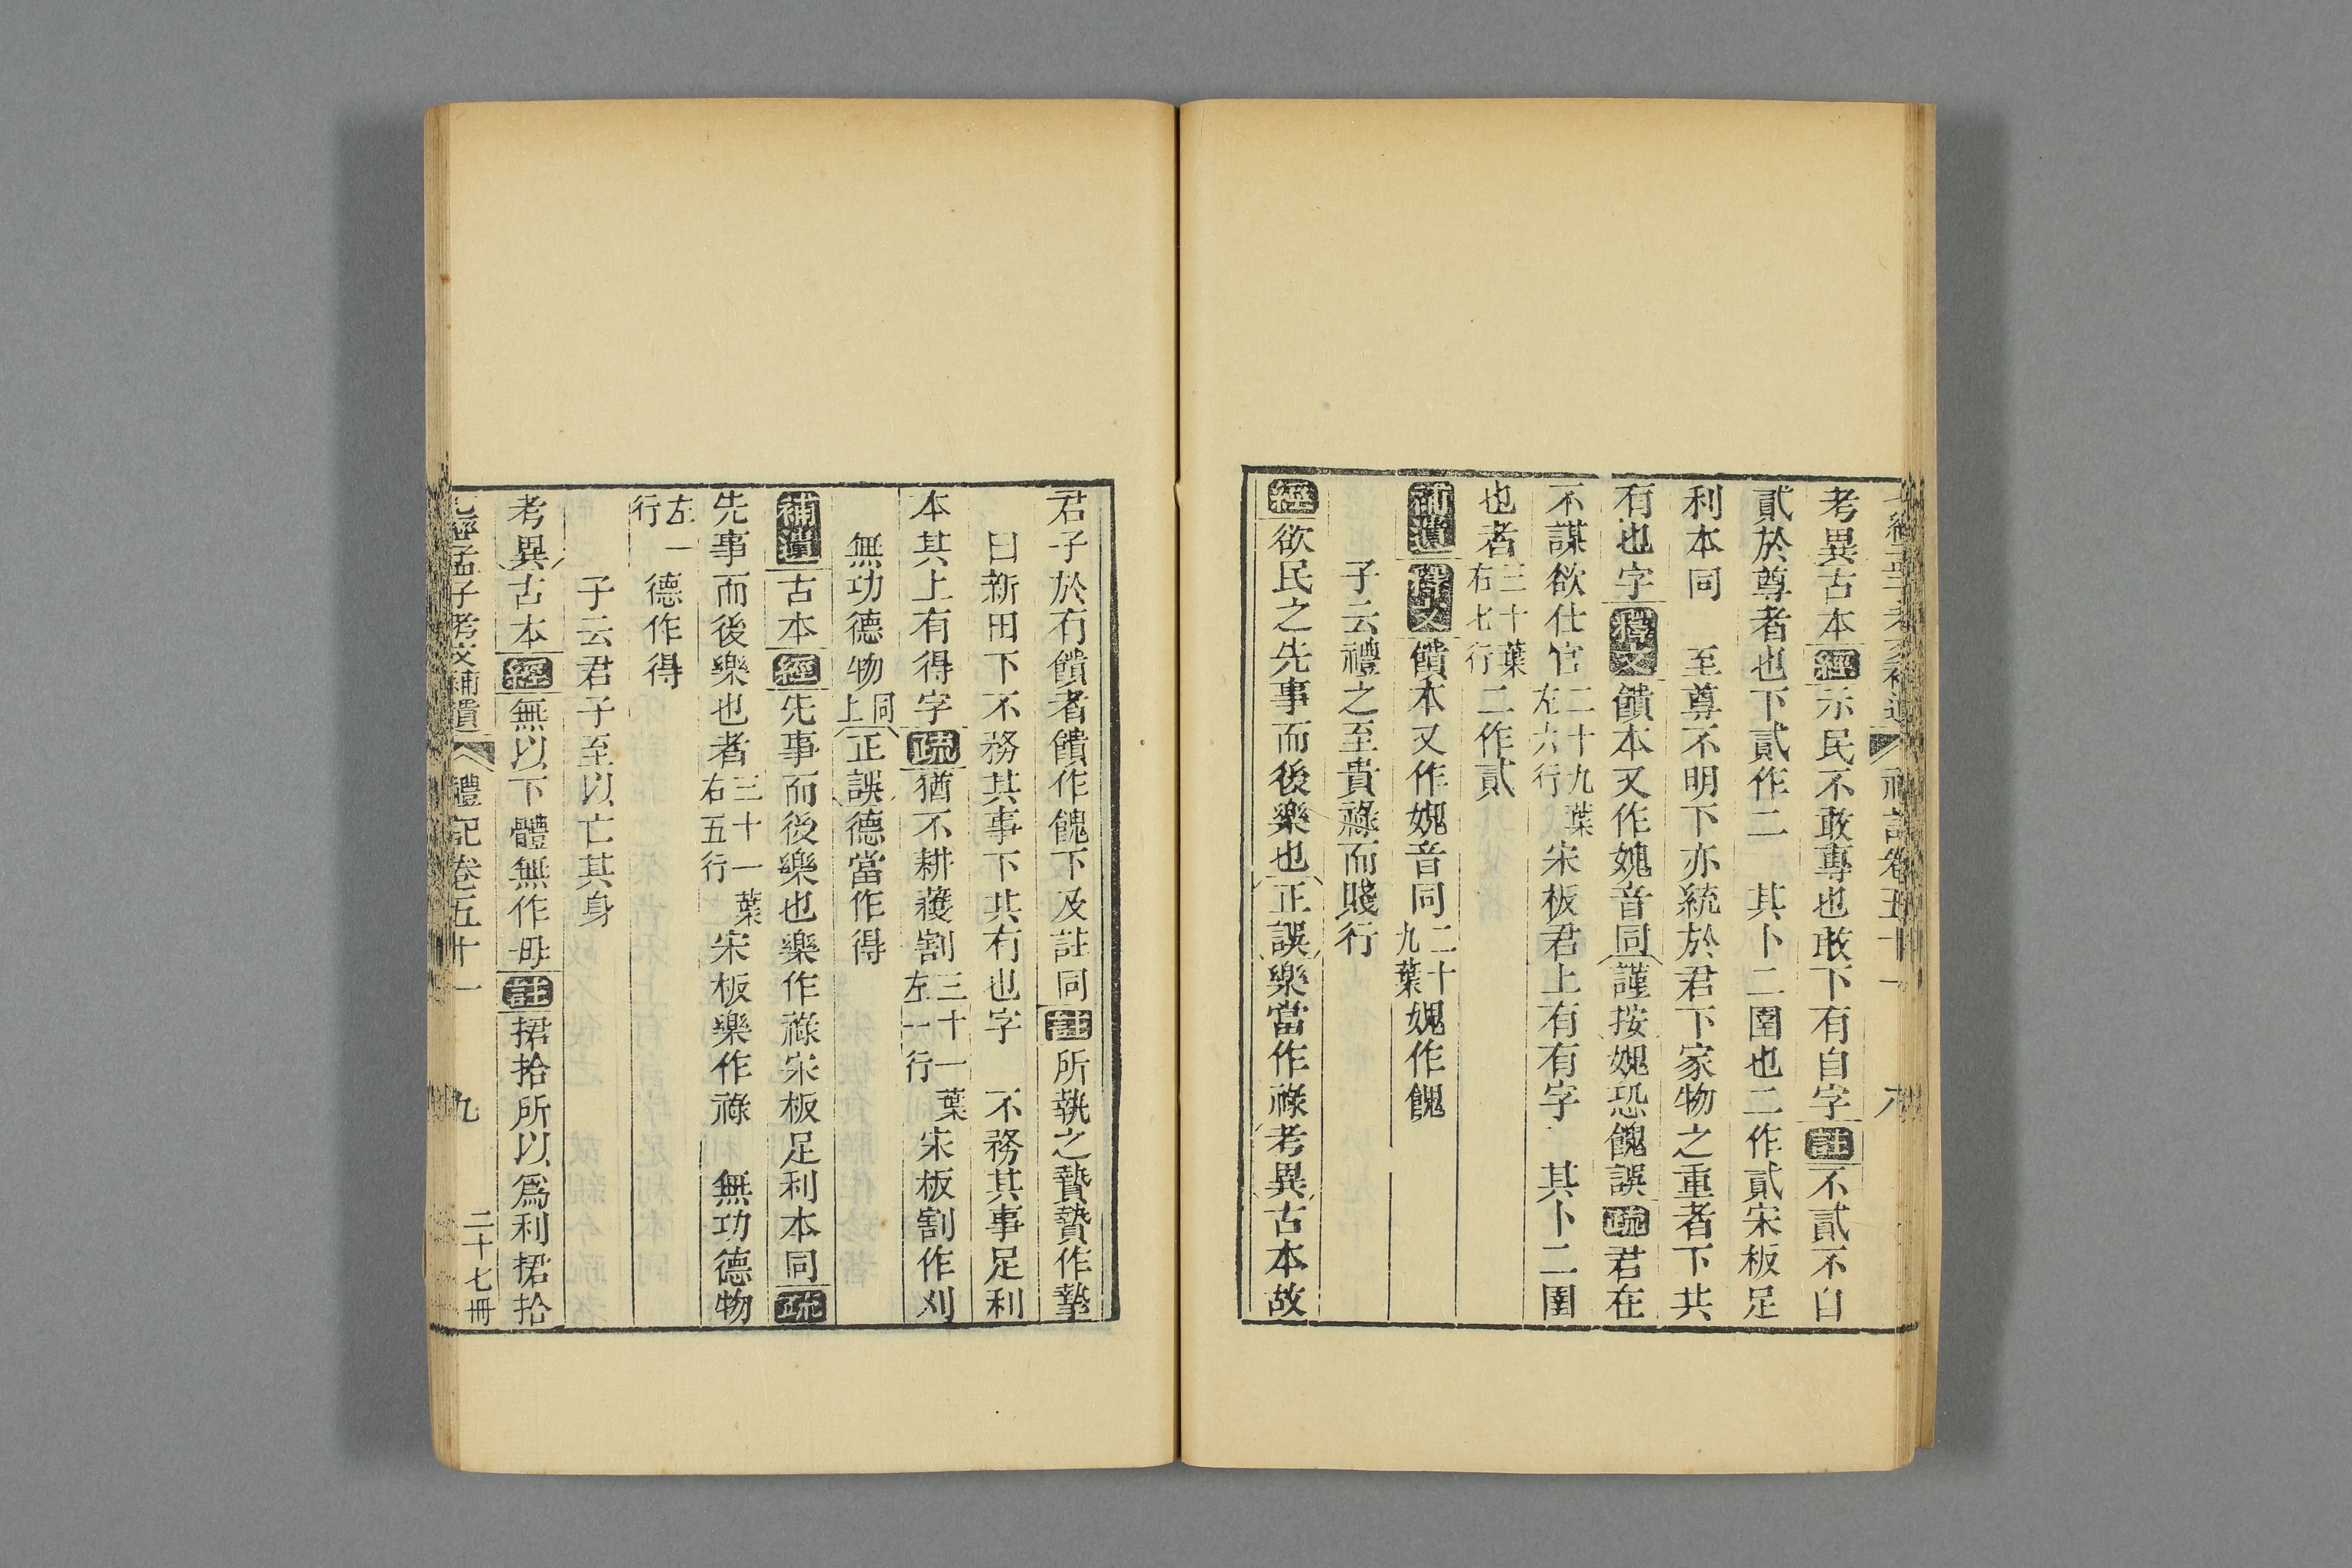 考異古本經示民不敢專也敢下有自字註不貳不自
貳於尊者也下貳作二　其卜二圍也二作貳宋板足
利本同　至尊不明下亦統於君下家物之重者下共
有也字釋文饋本又作媿音同謹按媿恐餽誤疏君在
不謀欲仕官二十九葉左六行宋板君上有有字　其卜二圍
也者三十葉右七行二作貳
補遺釋文饋本又作媿音同二十九葉媿作餽
子云禮之至貴祿而賤行
經欲民之先事而後樂也正誤樂當作祿考異古本故
君子於有饋者饋作餽下及註同註所執之贄贄作摯
曰新田下不務其事下共有也字　不務其事足利
本其上有得字疏猶不耕穫割三十一葉左一行宋板割作刈
無功德物同上正誤德當作得
補遺古本經先事而後樂也樂作祿宋板足利本同疏
先事而後樂也者三十一葉右五行宋板樂作祿　無功德物
左一行德作得
子云君子至以亡其身
考異古本經無以下體無作毋註捃拾所以爲利捃拾
七經孟子考文補遺　禮記卷五十一　九　二十七冊